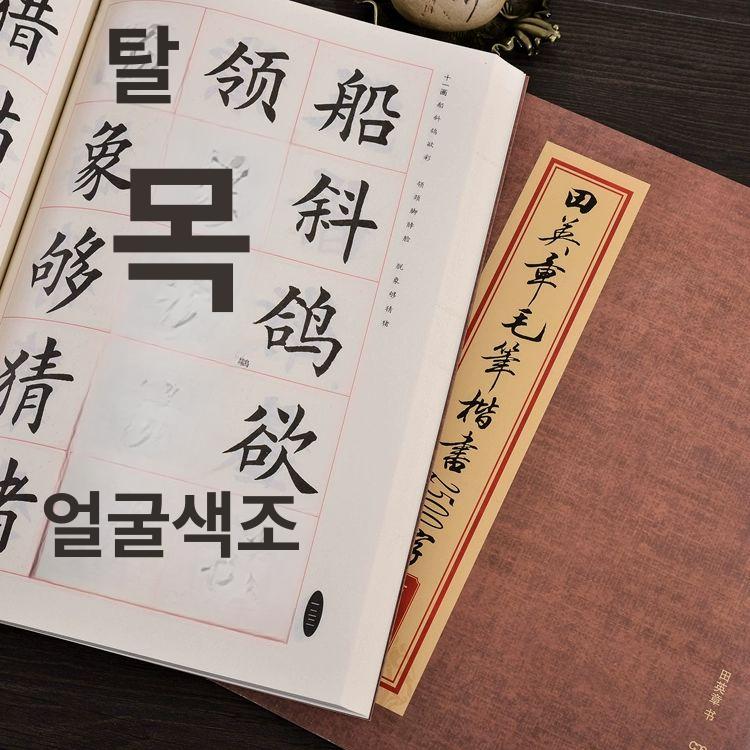 탈
목
얼굴색조
船
斜
鸽
欲
领
象
够
猜
猎
十一画 船 斜 鸽 欲 彩 领 颈 脚 脖 脸 脱 象 够 猜 猪
一二二
田英章毛筆楷書2500字
田英章 书